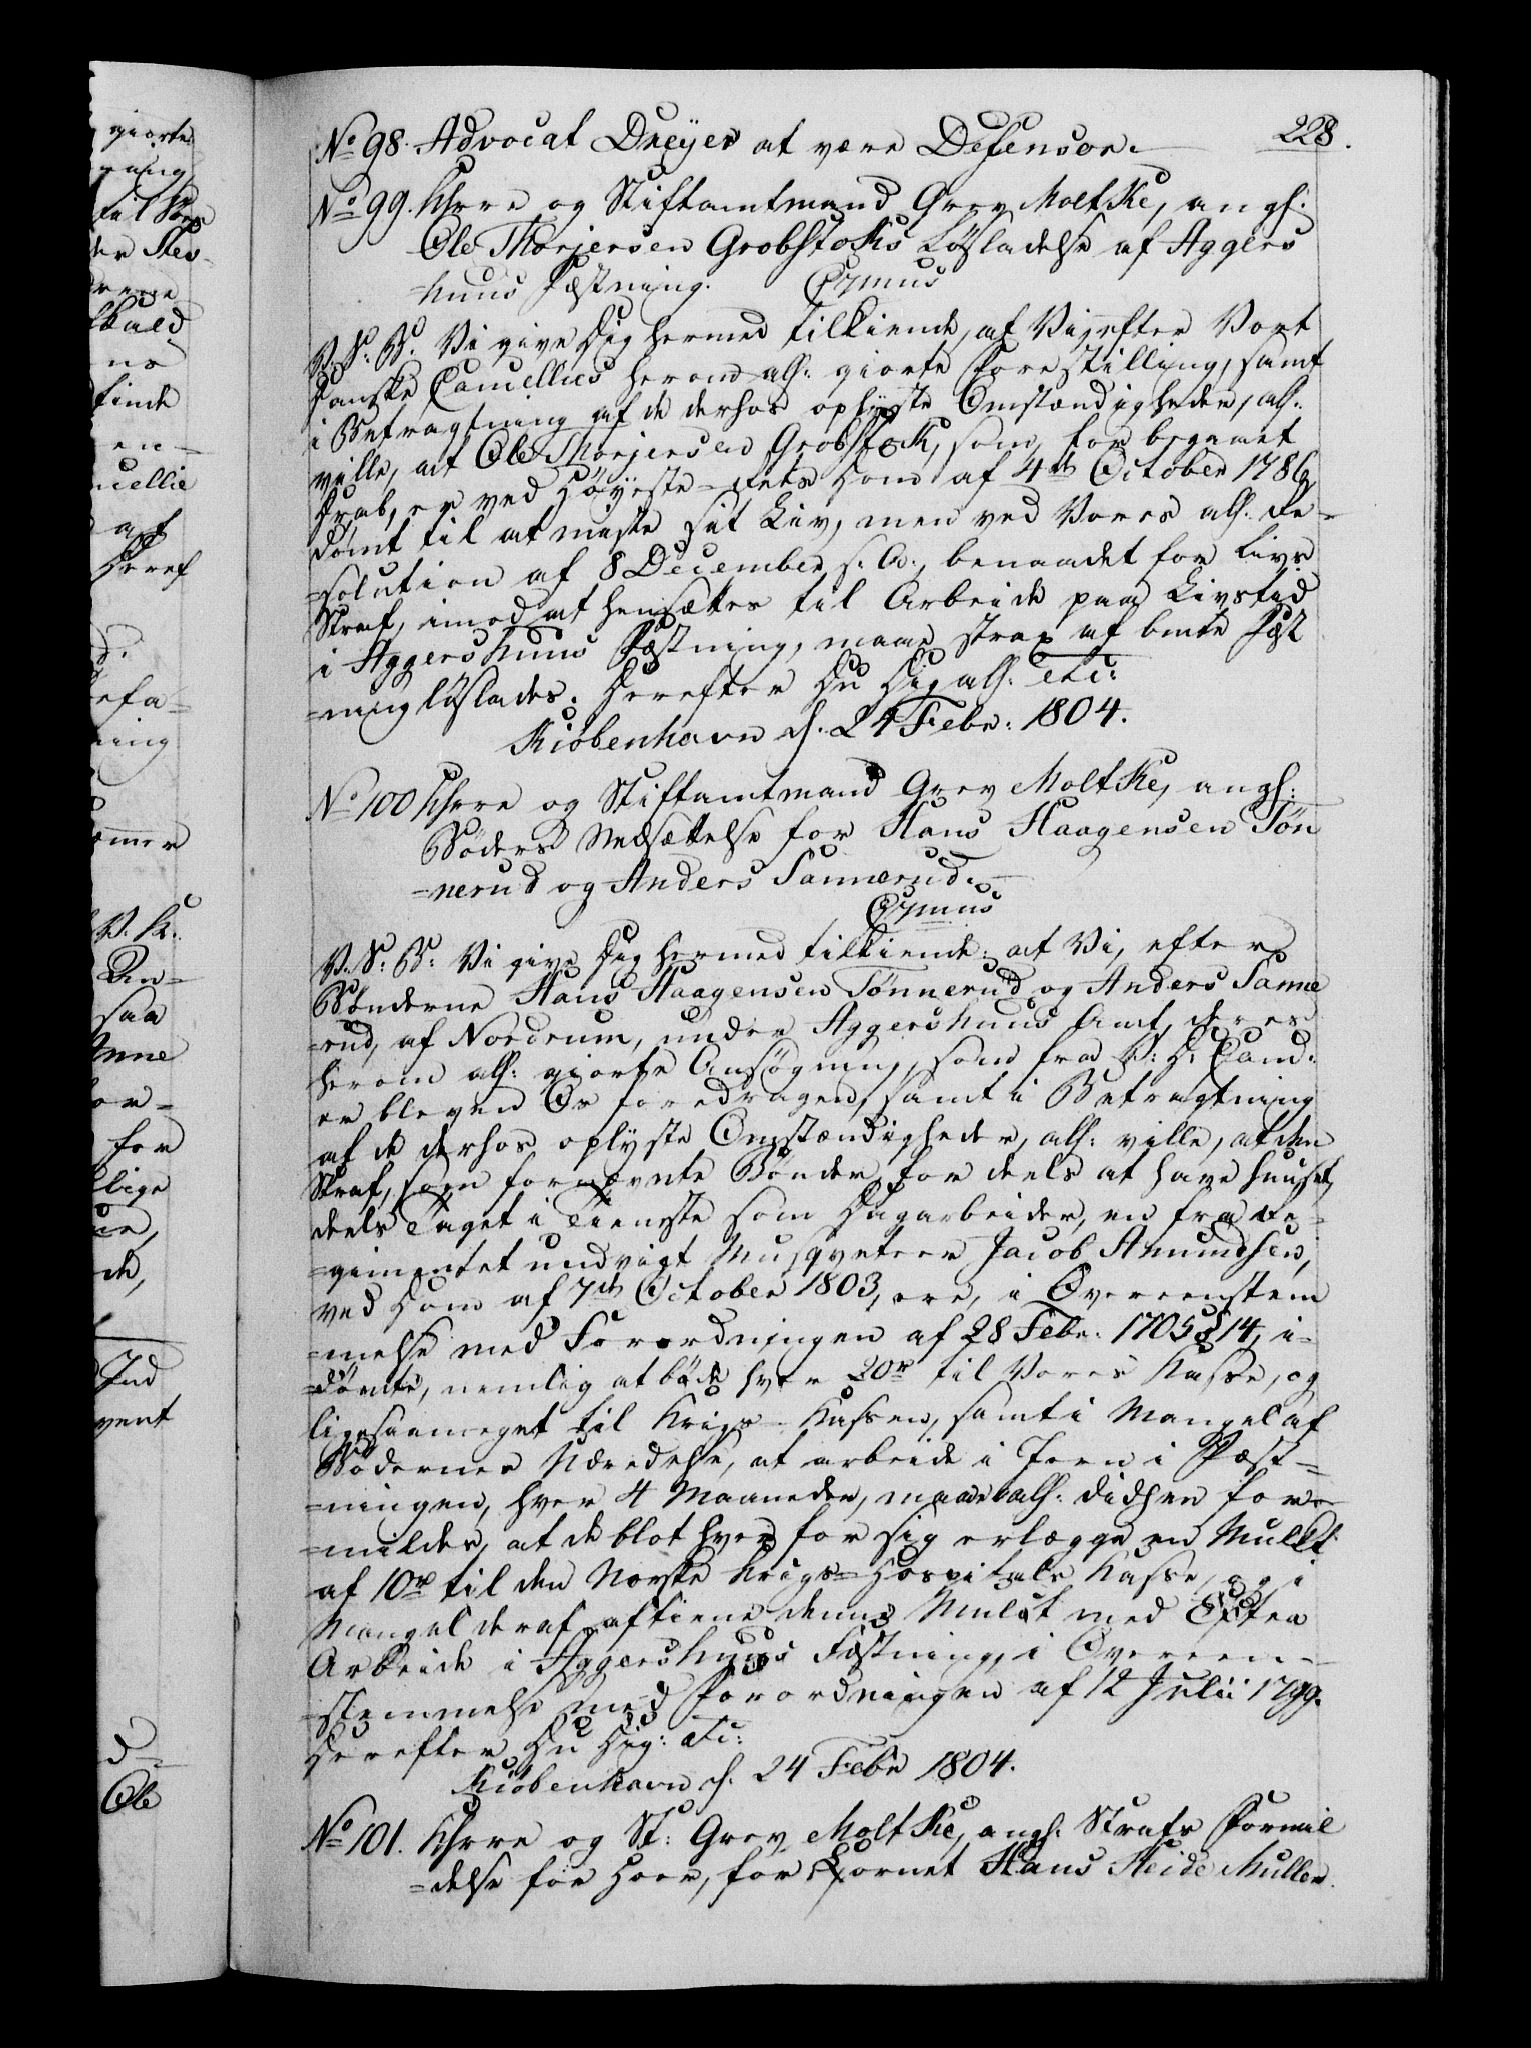 228.
No 98. Advocat Dreyer at være Defensor.
No 99. Khrre og Stiftamtmand Grev Moltke, angl.
Ole Thorjersen Grobstoks Løsladelse af Aggers
=huus Fæstning. Crmus
V. S: B. Vi give Dig hermed tilkiende, at Vi, efter Vort
Danske Cancellies herom all: giorte Forestilling, samt
i Betragtning af de derhos oplyste Omstændigheder, all:
ville, at Ole Thorjersen Grobstok, som, for begaaet
Drab, er ved Høyeste=Rets Dom af 4de October 1786,
dømt til at miste sit Liv, men ved Vores all. Re=
=solution af 8 December s. A., benaadet for Livs
Straf, imod at hensættes til Arbeide paa Livstid
i Aggershuus Fæstning, maae strax af bmte Fæst
=ning løslades. Herefter Du Dig all. etc:
Kiøbenhavn d. 24 Febr: 1804.
No 100 Khrre og Stiftamtmand Grev Moltke, angl:
Bøders Nedsættelse for Hans Haagensen Tøn
=nerud og Anders Sannerud.
Crmus
V. S: B: Vi give Dig hermed tilkiende: at Vi, efter
Bønderne Hans Haagensen Tønnerud og Anders Sanne
=rud, af Nordrum, under Aggershuus Amt, deres
herom all: giorte Ansøgning, som fra V: D: Canc:
er bleven Os foredragen, samt i Betragtning
af de derhos oplyste Omstændigheder, all: ville, at den
Straf, som fornævnte Bønder, for deels at have huuset,
deels taget i Tieneste som Dagarbeider, en fra Re=
=gimentet undvigt Musqveteer Jacob Amundsen,
ved Dom af 7de October 1803, ere, i Overeenstem
=melse med Forordningen af 28 Febr: 1705 § 14, i=
=dømte, nemlig at bøde hver 20 rd til Vores Kasse, og
ligesaameget til Krigs=Kassen, samt i Mangel af
Bødernes Udredelse, at arbeide i Jern i Fæst=
=ningen, hver 4 Maaneder, maae all: didhen for=
=mildes, at de blot hver for sig erlægge en Mulkt
af 10 rd til den Norske Krigs=Hospitals Kasse, og i
Mangel deraf aftiene denne Mulct med Extra
Arbeide i Aggershuus Fæstning, i Overeen=
=stemmelse med Forordningen af 12 Julii 1799.
Herefter Du Dig: etc:
Kiøbenhavn d. 24 Febr 1804.
No 101. Khrre og St: Grev Moltke, angl. Strafs Formil
=delse for Hoer, for Cornet Hans Heide Muller.